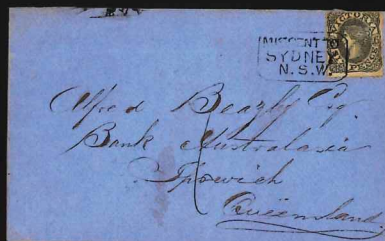 VICTORIA
MISSENT TO
SYDNEY
N.S.W.
Alfred Beazly Esq
Bank Australasia
Ipswich
Queensland